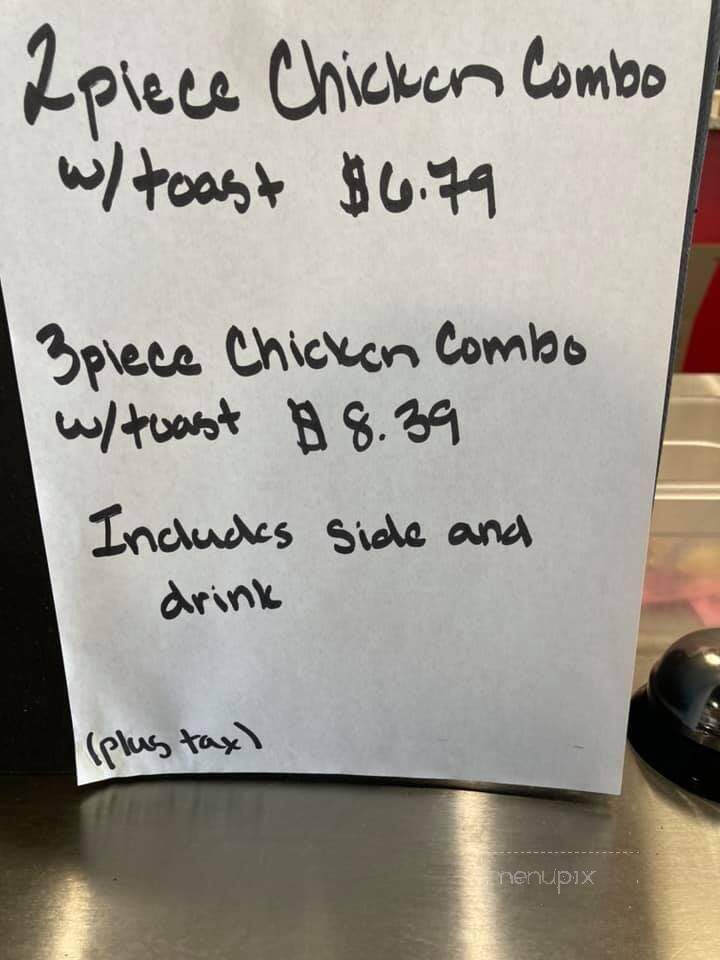 2piece Chicken Combo
w/toast $6.79
3piece Chicken Combo
w/toast $8.39
Includes side and
drink
(plus tax)
menupix